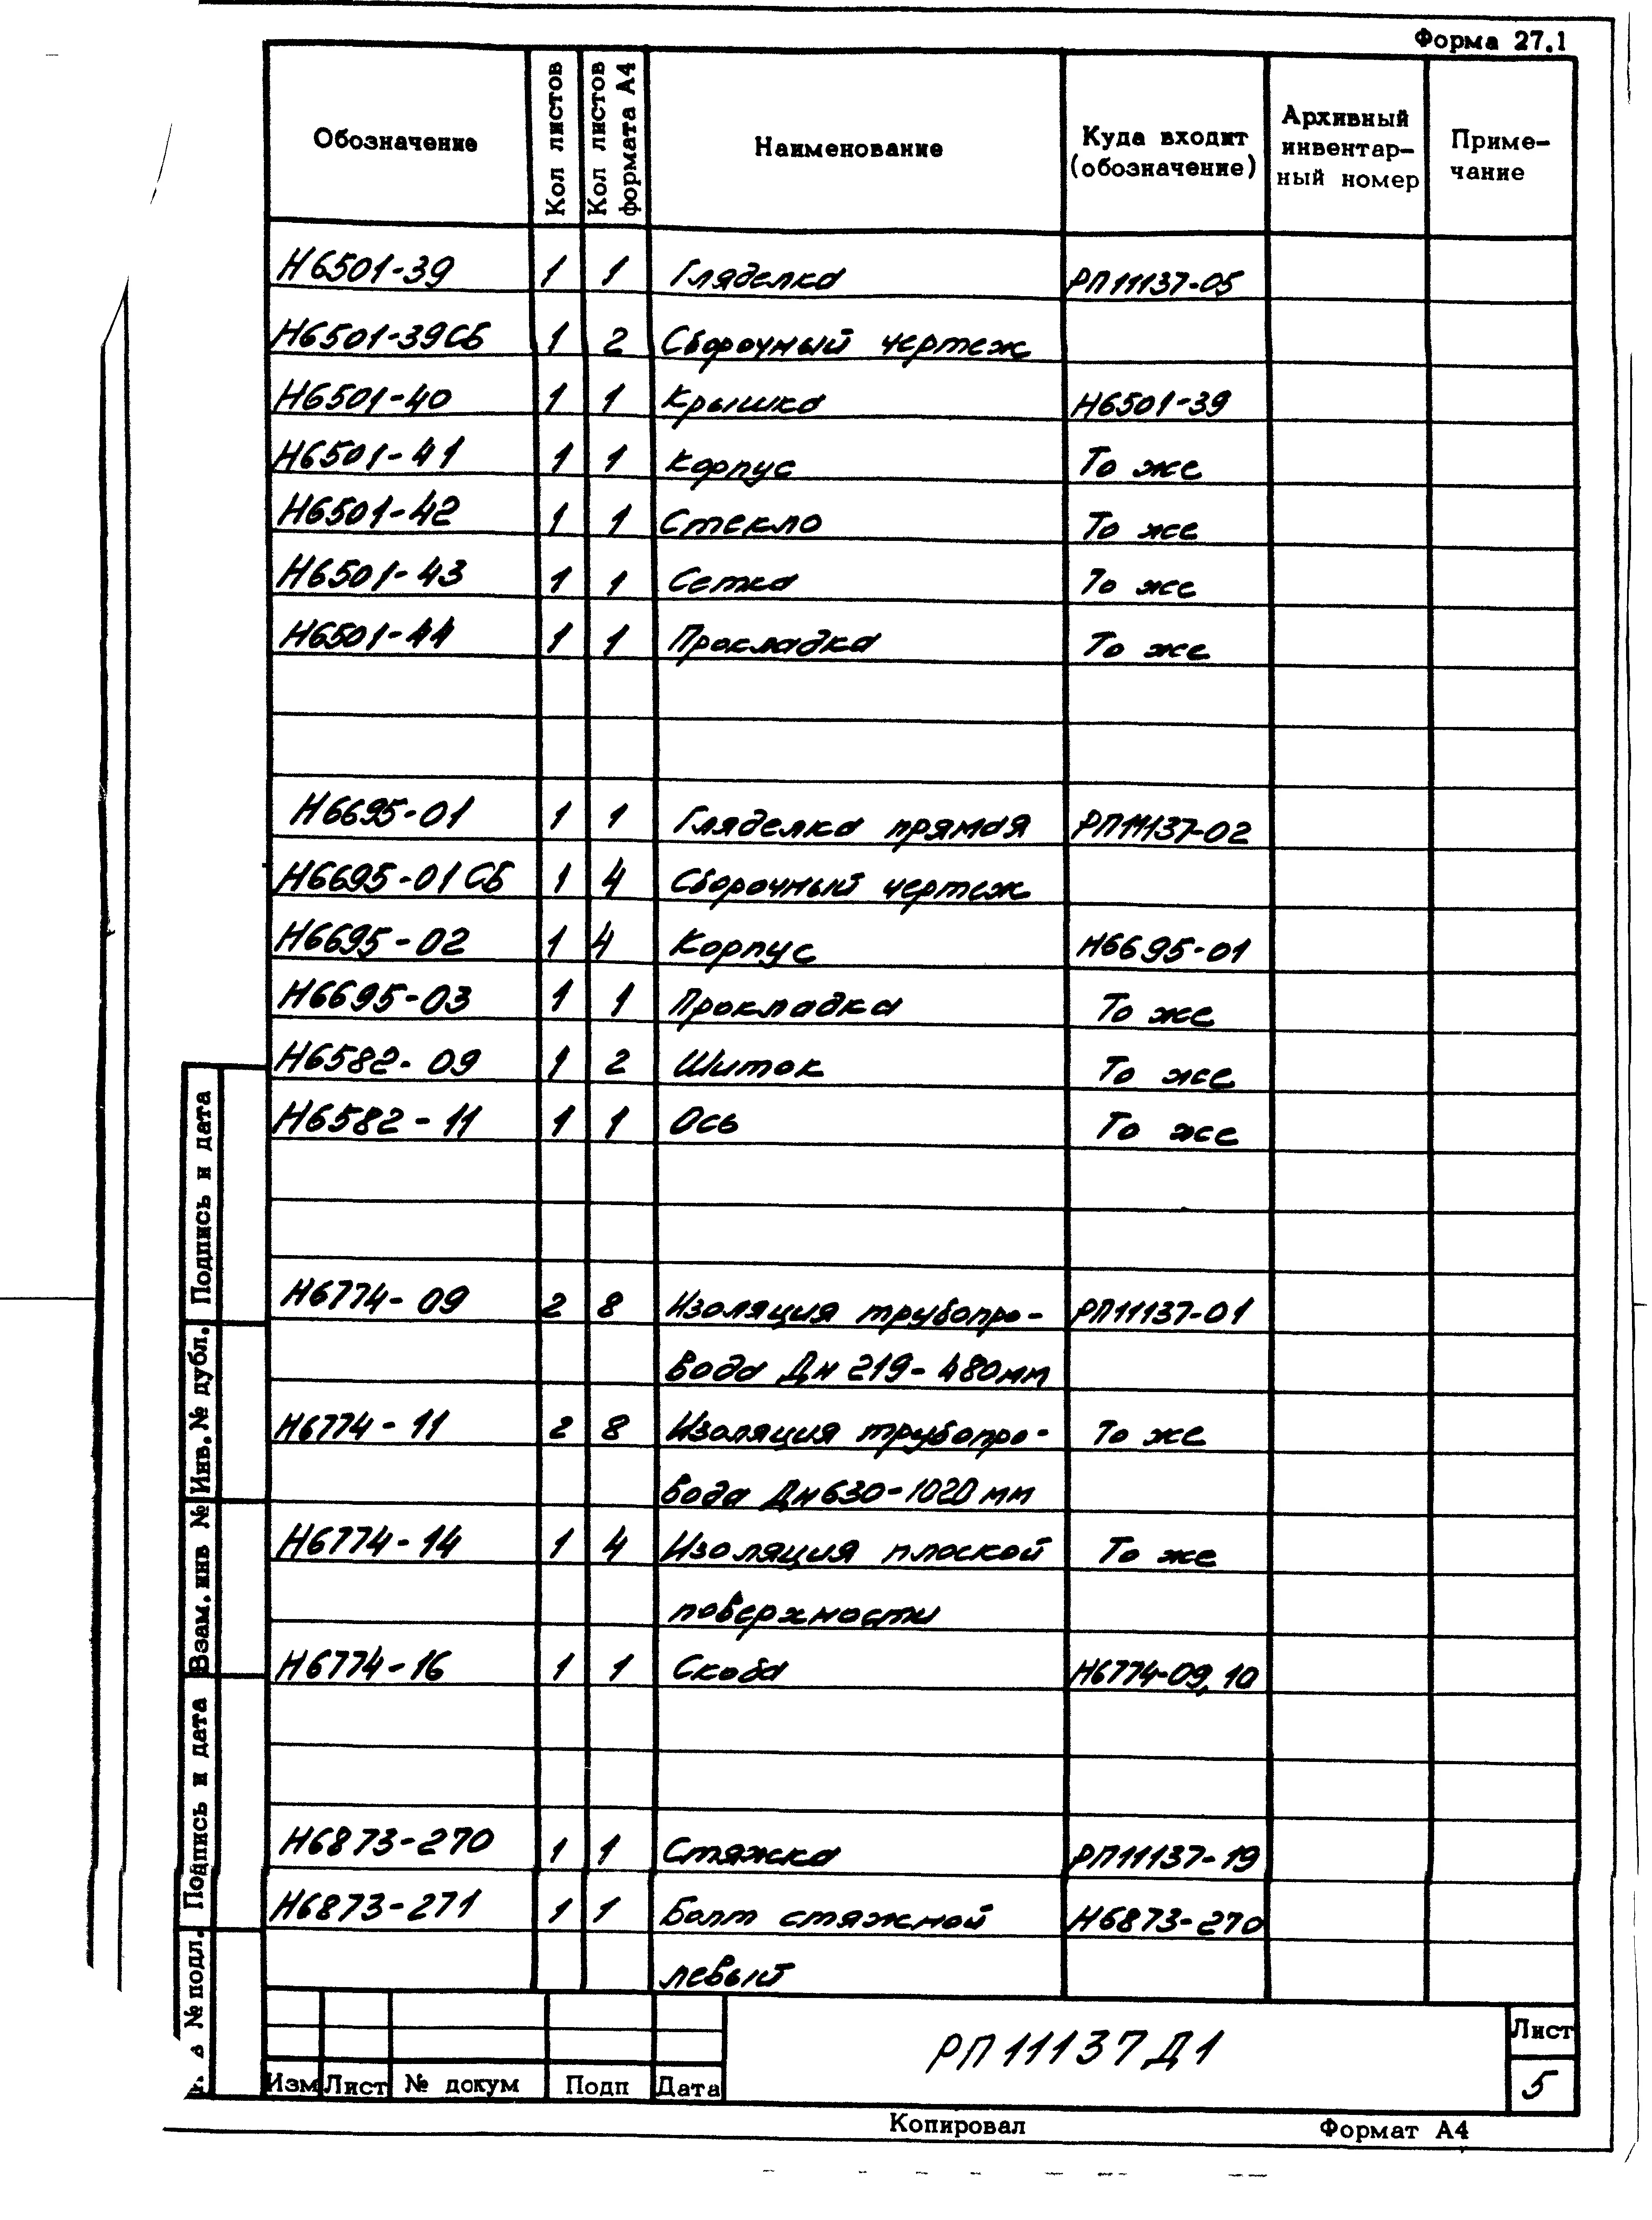 Форма 27.1
Обозначение Кол листов Кол листов формата А4 Наименование Куда входит (обозначение) Архивный инвентар- ный номер Приме- чание
Н6501-39 1 1 Гляделка РП11137-05
Н6501-39СБ 1 2 Сборочный чертеж
Н6501-40 1 1 Крышка Н6501-39
Н6501-41 1 1 Корпус То же
Н6501-42 1 1 Стекло То же
Н6501-43 1 1 Сетка То же
Н6501-44 1 1 Прокладка То же
Н6695-01 1 1 Гляделка прямая РП11137-02
Н6695-01СБ 1 4 Сборочный чертеж
Н6695-02 1 4 Корпус Н6695-01
Н6695-03 1 1 Прокладка То же
Н6582-09 1 2 Шиток То же
Н6582-11 1 1 Ось То же
Н6774-09 2 8 Изоляция трубопро- РП11137-01
вода Дн 219-480мм
Н6774-11 2 8 Изоляция трубопро- То же
вода Дн 630-1020 мм
Н6774-14 1 4 Изоляция плоской То же
поверхности
Н6774-16 1 1 Скоба Н6774-09, 10
Н6873-270 1 1 Стяжка РП11137-19
Н6873-271 1 1 Болт стяжной Н6873-270
левый
Подпись и дата
Инв. № дубл.
Взам. инв №
Подпись и дата
№ подл.
РП 11137 Д1
Лист
5
Изм Лист № докум Подп Дата
Копировал Формат А4